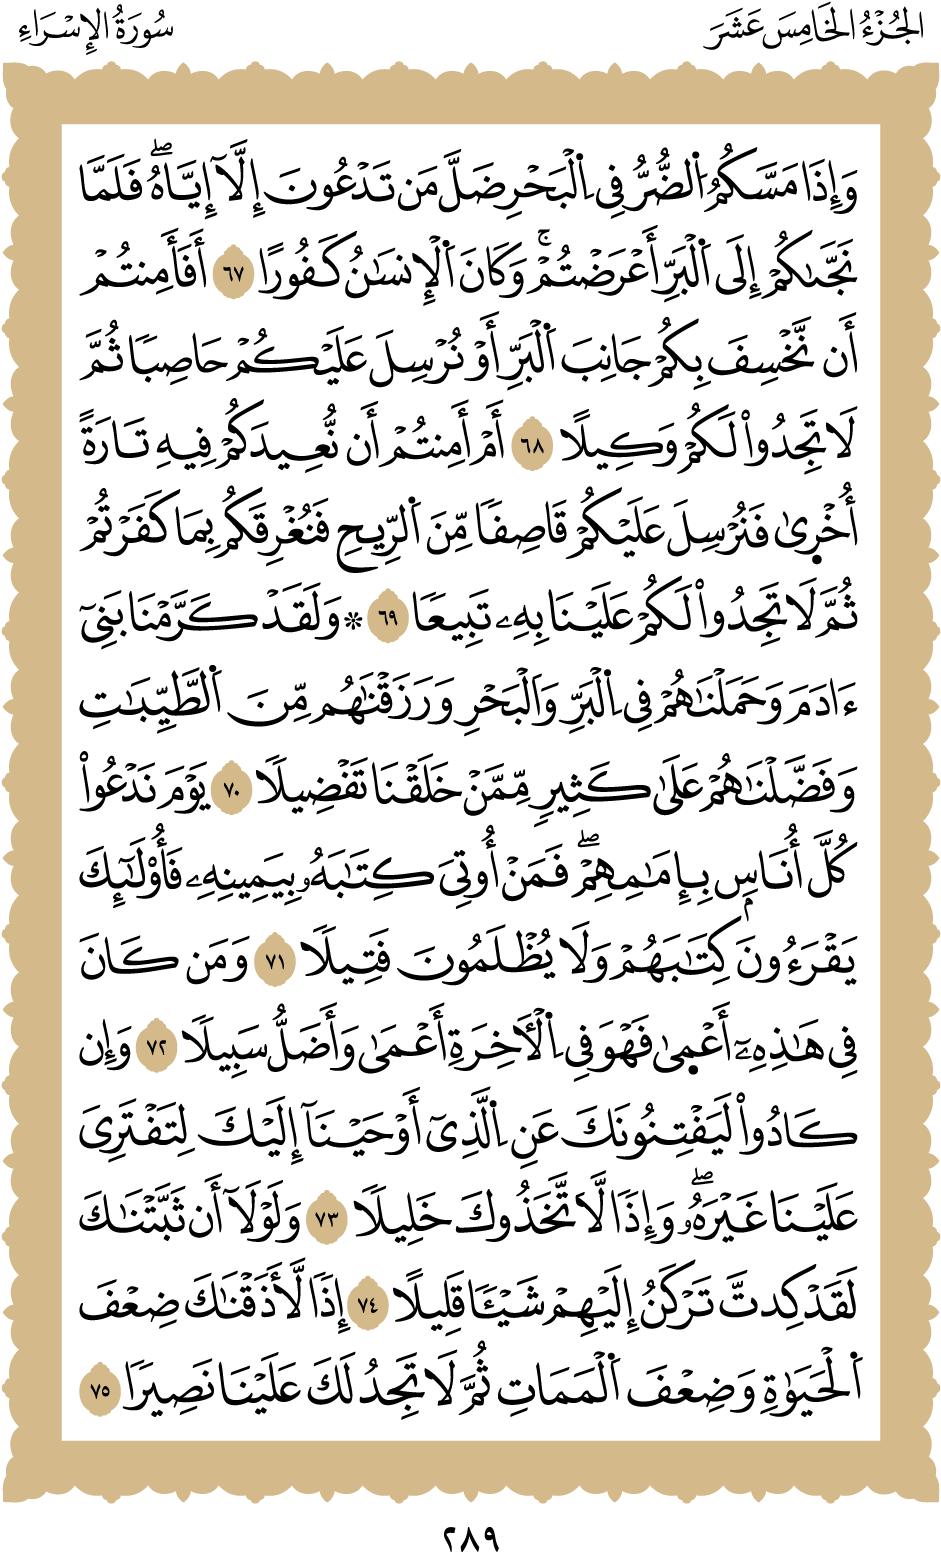 الجُزْءُ الخَامِسَ عَشَرَ
سُورَةُ الإِسْرَاءِ
وَإِذَا مَسَّكُمُ اُ۬لضُّرُّ فِي اِ۬لْبَحْرِ ضَلَّ مَن تَدْعُونَ إِلَّآ إِيَّاهُۖ فَلَمَّا
نَجَّىٰكُمْ إِلَى اَ۬لْبَرِّ أَعْرَضْتُمْۚ وَكَانَ اَ۬لْإِنسَٰنُ كَفُورًا ٦٧ أَفَأَمِنتُمْ
أَن نَّخْسِفَ بِكُمْ جَانِبَ اَ۬لْبَرِّ أَوْ نُرْسِلَ عَلَيْكُمْ حَاصِبًا ثُمَّ
لَا تَجِدُواْ لَكُمْ وَكِيلًا ٦٨ أَمْ أَمِنتُمْ أَن نُّعِيدَكُمْ فِيهِ تَارَةً
أُخْر۪ىٰ فَنُرْسِلَ عَلَيْكُمْ قَاصِفًا مِّنَ اَ۬لرِّيحِ فَنُغْرِقَكُم بِمَا كَفَرْتُمْ
ثُمَّ لَا تَجِدُواْ لَكُمْ عَلَيْنَا بِهِۦ تَبِيعًا ٦٩ ۞ وَلَقَدْ كَرَّمْنَا بَنِيٓ
ءَادَمَ وَحَمَلْنَٰهُمْ فِي اِ۬لْبَرِّ وَالْبَحْرِ وَرَزَقْنَٰهُم مِّنَ اَ۬لطَّيِّبَٰتِ
وَفَضَّلْنَٰهُمْ عَلَىٰ كَثِيرٍ مِّمَّنْ خَلَقْنَا تَفْضِيلًا ٧٠ يَوْمَ نَدْعُواْ
كُلَّ أُنَاسِۭ بِإِمَٰمِهِمْۖ فَمَنْ أُوتِيَ كِتَٰبَهُۥ بِيَمِينِهِۦ فَأُوْلَٰٓئِكَ
يَقْرَءُونَ كِتَٰبَهُمْ وَلَا يُظْلَمُونَ فَتِيلًا ٧١ وَمَن كَانَ
فِي هَٰذِهِۦٓ أَعْم۪ىٰ فَهْوَ فِي اِ۬لْأٓخِرَةِ أَعْمَىٰ وَأَضَلُّ سَبِيلًا ٧٢ وَإِن
كَادُواْ لَيَفْتِنُونَكَ عَنِ اِ۬لَّذِيٓ أَوْحَيْنَآ إِلَيْكَ لِتَفْتَرِيَ
عَلَيْنَا غَيْرَهُۥۖ وَإِذًا لَّاتَّخَذُوكَ خَلِيلًا ٧٣ وَلَوْلَآ أَن ثَبَّتْنَٰكَ
لَقَدْ كِدتَّ تَرْكَنُ إِلَيْهِمْ شَيْـًٔا قَلِيلًا ٧٤ إِذًا لَّأَذَقْنَٰكَ ضِعْفَ
اَ۬لْحَيَوٰةِ وَضِعْفَ اَ۬لْمَمَاتِ ثُمَّ لَا تَجِدُ لَكَ عَلَيْنَا نَصِيرًا ٧٥
٢٨٩